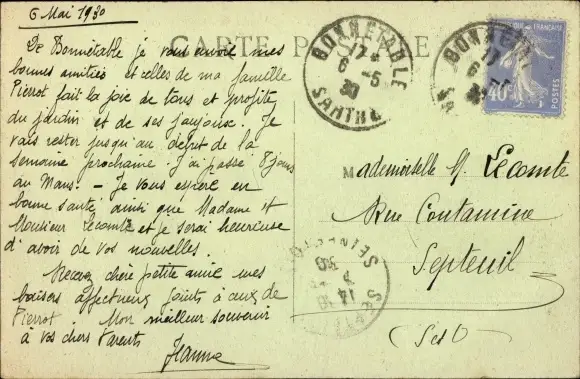 6 Mai 1930
CARTE POSTALE
De Bonnétable je vous envoie mes
bonnes amitiés et celles de ma famille
Pierrot fait la joie de tous et profite
du jardin et de ses joujoux. Je
vais rester jusqu'au début de la
semaine prochaine. J'ai passé 8 jours
au Mans. – Je vous espère en
bonne santé ainsi que Madame et
Monsieur Lecomte et je serai heureuse
d'avoir de vos nouvelles.
Recevez chère petite amie mes
baisers affectueux joints à ceux de
Pierrot. Mon meilleur souvenir
à vos chers Parents
Jeanne
BONNETABLE
17
6 -5
30
SARTHE
BONNET
17
6
FRANÇAISE
40c
POSTES
Mademoiselle M. Lecomte
Rue Contamine
Septeuil
(S et O)
SEINE-ET-O
14
30